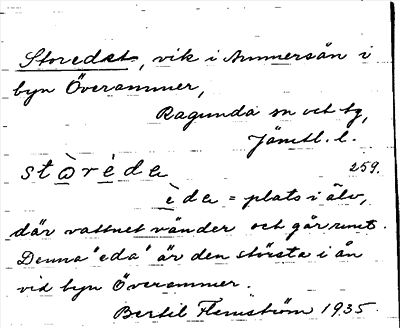 Storedet, vik i Ammersån i
byn Överammer,
Ragunda sn och tg,
Jämtl. l.
stὰrèda 259.
èda = plats i älv,
där vattnet vänder och går runt.
Denna "eda" är den största i ån
vid byn Överammer.
Bertil Flemström 1935.